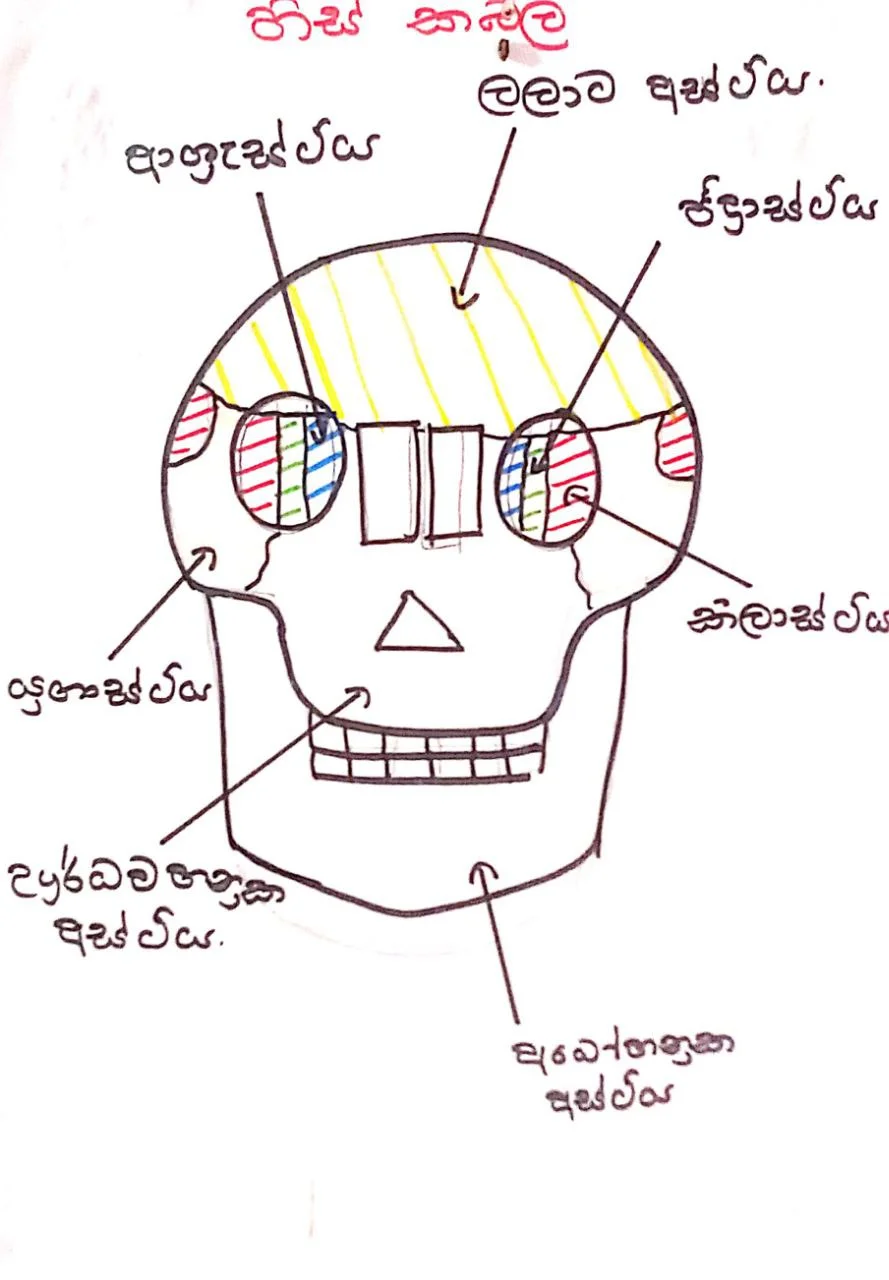 හිස් කබල
ලලාට අස්ථිය.
ආශ්‍රැස්ථිය
ඡිද්‍රාස්ථිය
කීලාස්ථිය
යුගාස්ථිය
ඌර්ධව හනුක
අස්ථිය.
අධෝහනුක
අස්ථිය